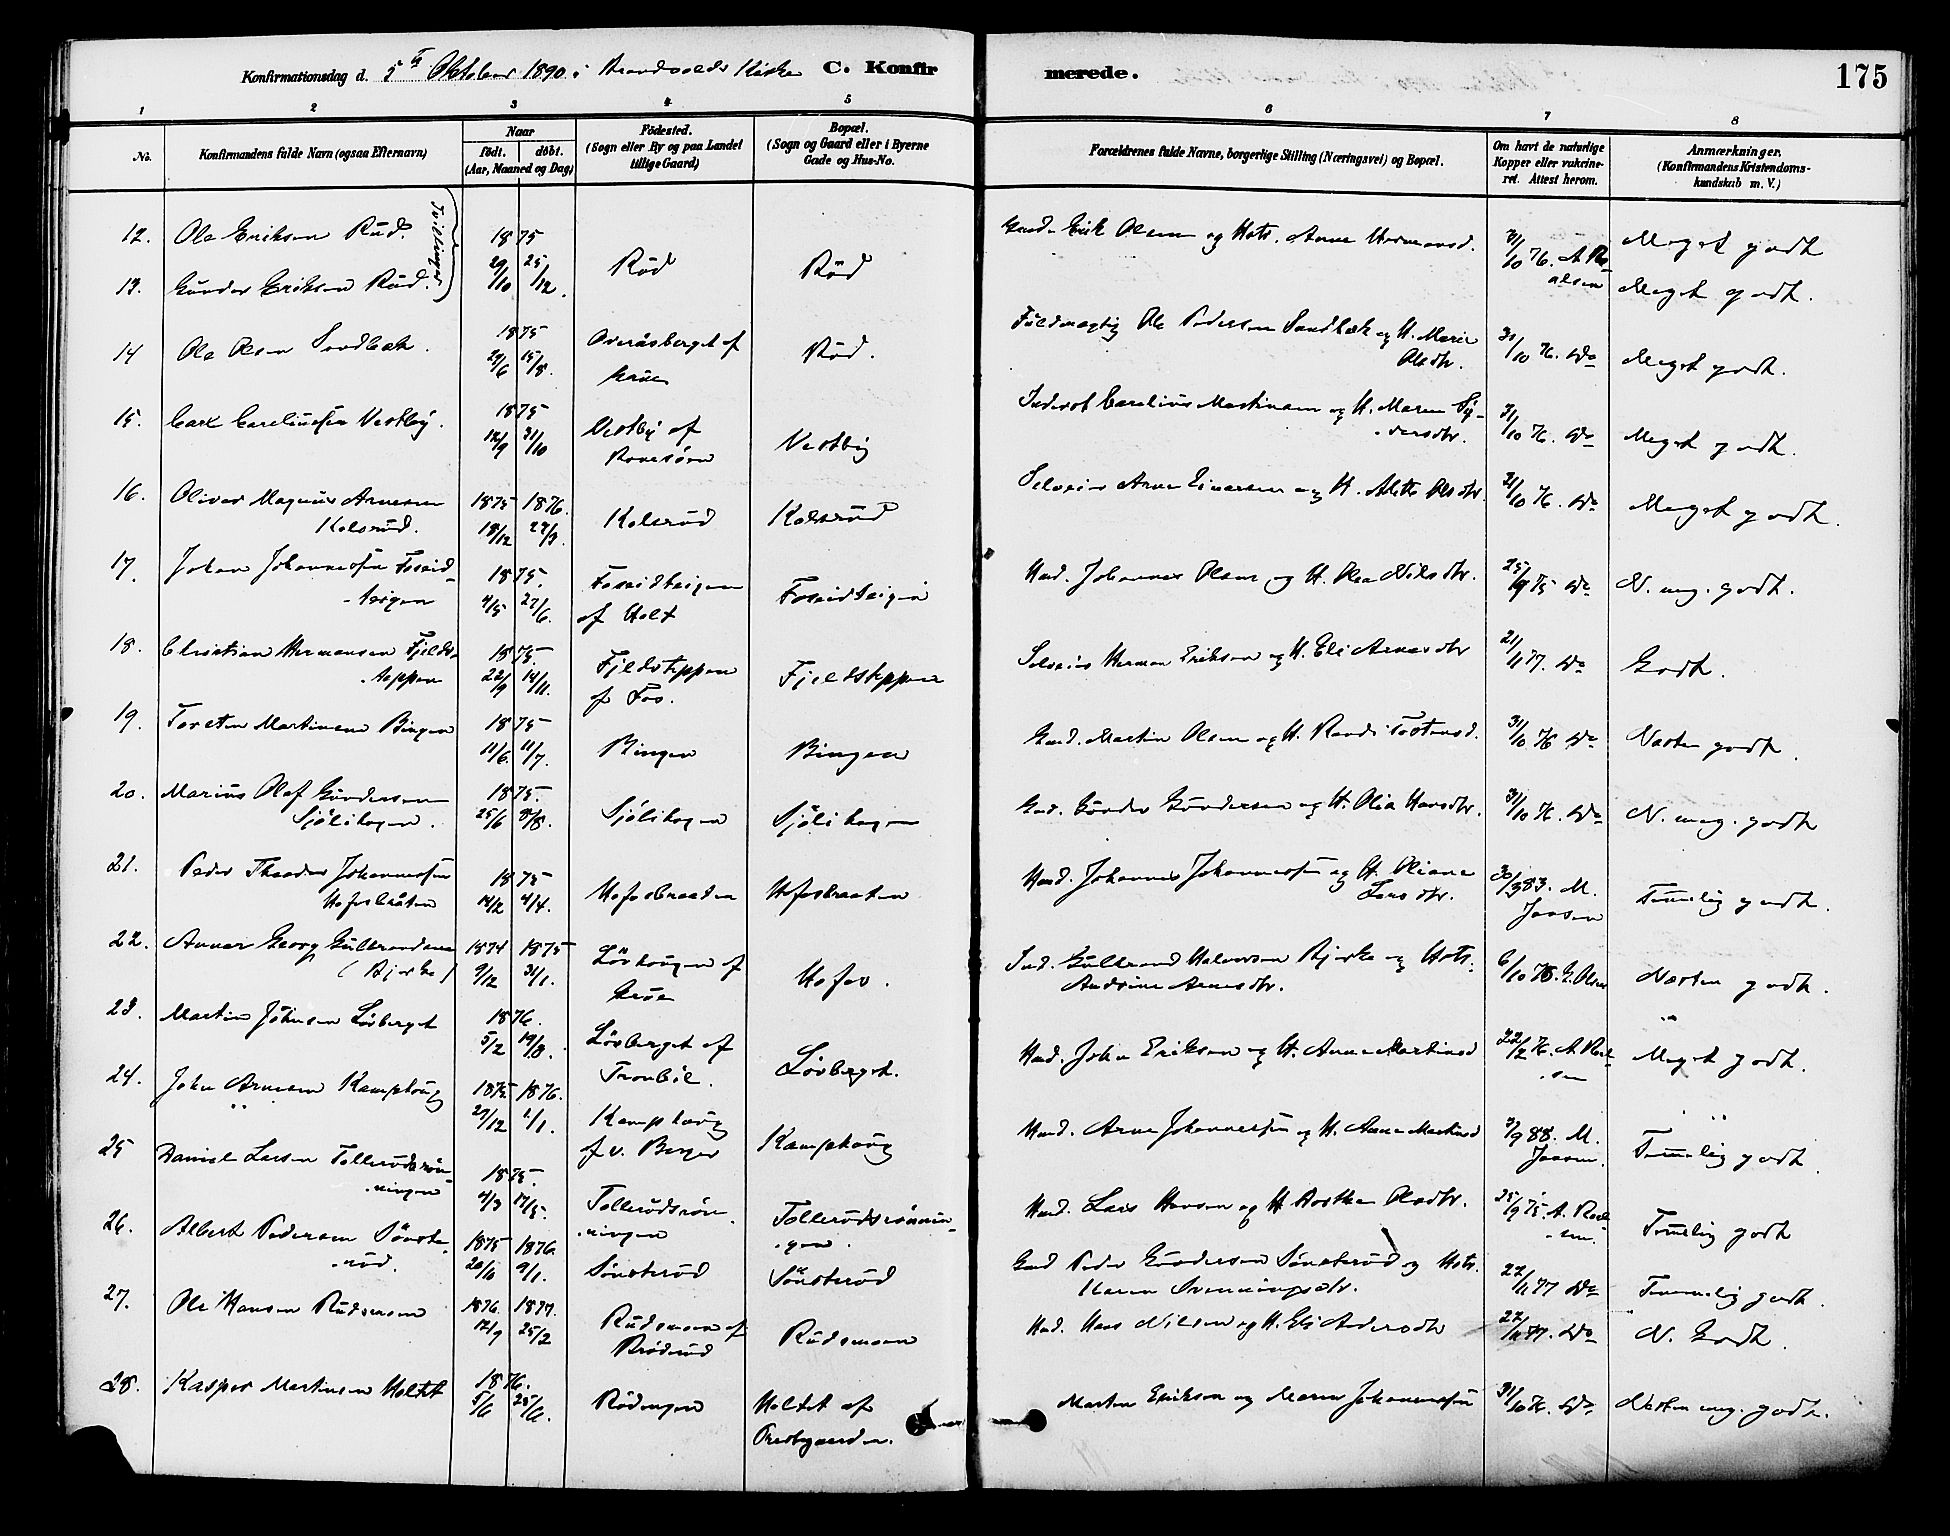 Konfirmationsdag d. 5te Oktober 1890 i Brandvolds Kirke C. Konfirmerede. 175
1 2 3 4 5 6 7 8
No. Konfirmandens fulde Navn (ogsaa Efternavn) Naar født. døbt. (Aar, Maaned og Dag) Fødested. (Sogn eller By og paa Landet tillige Gaard) Bopæl. (Sogn og Gaard eller i Byerne Gade og Hus-No. Forældrenes fulde Navne, borgerlige Stilling (Næringsvei) og Bopæl. Om havt de naturlige Kopper eller vakcineret. Attest herom. Anmærkninger. (Konfirmandens Kristendomskundskab m. V.)
12. Ole Eriksen Rud. Tvillinger 1875 29/10 25/12. Rød Rød Gmd. Erik Olsen og Hstr. Anne Hermansd. 31/10 76. Meget godt
13. Gunder Eriksen Rud. Meget godt.
14 Ole Olsen Sandbæk. 1875 29/6 15/8. Overåsberget af Grue Rød. Fuldmægtig Ole Pedersen Sandbæk og H. Marie Olsdtr. 31/10 76. Do Meget godt.
15. Carl Careliussen Vestby. 1875 12/9 31/10 Vestby af Vestby Inderst Carelius Martinsen og H. Maren 31/10 76. Do Meget godt.
16. Oliver Magnus Arnesen Kolsrud. 1875 18/12 1876. Kolsrud Kolsrud Selveier Arne Einarsen og H. Olsdtr. 31/10 76. Do Meget godt.
17. Johan Johannessen Fosseidteigen 1875. 4/5 27/6. Fosseidteigen af Holt Fosseidteigen Hmd. Johannes Olsen og H. Olea Nilsdtr. 25/9 75 Do N. meg. godt.
18. Christian Hermansen Fjeldsteppen 1875. 22/9 14/11. Fjeldsteppen af Fos. Fjeldsteppen Selveier Herman Eriksen og H. Eli Arnesdtr 21/11 77. Do Godt.
19. Torsten Martinsen Bingen 1875 11/6. 11/7. Bingen Bingen Gmd. Martin Olsen og H. Randi Tostensd. 31/10 76 Do Næsten godt.
20. Marius Olaf Gundersen Sjølihagen. 1875. 25/6 8/8. Sjølihagen Sjølihagen Gmd. Gunder Gundersen og H. Olia Hansdtr. 31/10 76. Do N. meg. godt
21. Peder Theodor Johannessen Hofosbråten 1875 14/2 4/4. Hofosbraaden Hofosbraaten Hmd. Johannes Johannessen og H. Oliane Larsdtr. 30/3 83. M. Jensen Temmelig godt.
22. Georg Gulbrandsen (Bjerke) 1874 9/12 1875 31/1. Løvhaugen af Grue Hofos. Ind. Gulbrand Halvorsen Bjerke og Hstr. Andrine Arnesdtr. 6/10 75. E. Olsen Næsten godt.
23. Martin Johnsen Løvberget 1876. 5/2 19/3. Løvberget af Tronbøl. Løvberget. Hmd. John Eriksen og H. Anne Martinsd 22/2 76. Meget godt.
24. John Arnesen Kamphaug 1875 29/12 1876. 1/1. Kamphaug af v. Berger Kamphaug Hmd. Arne Johannessen og H. Anne Martinsd 3/9 88. M. Jensen. Temmelig godt.
25 Daniel Larsen Tollerudsrønningen 1875. 4/3 17/5. Tollerudsrønningen Tollerudsrønningen. Hmd. Lars Hansen og H. Olsdtr. 25/9 75. Temmelig godt
26. Albert Pedersen Sønsterød. 1875 20/10 1876. 9/1. Sønsterud Sønsterud Gmd Peder Gundersen Sønsterud og Hstr. Karen Svenningsdtr. 22/11 77 Do Temmelig godt.
27. Ole Hansen Rudsmoen 1876. 12/9 1877. 25/2 Rudsmoen af Brøderud Rudsmoen Hmd. Hans Nilsen og H. Eli Andersdtr 22/11 77. Do N. Godt.
28. Kasper Martinsen Holtet 1876. 5/6 25/6. Rødengen Holtet af Præstegaarden. Morten Eriksen og Maren Johannessen 31/10 76. Do. Næsten meg. godt.